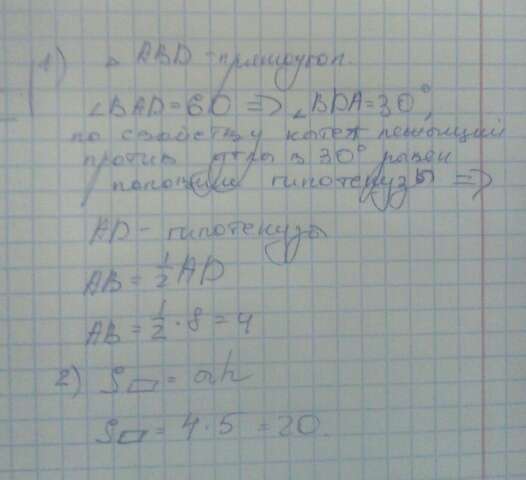 1) △ ABD - прямоугол.
∠BAD = 60 => ∠BDA = 30°,
по свойству катет лежащий
против угла в 30° равен
половине гипотенузы =>
AD - гипотенуза
AB = 1/2 AD
AB = 1/2 · 8 = 4
2) S▱ = ah
S▱ = 4 · 5 = 20.